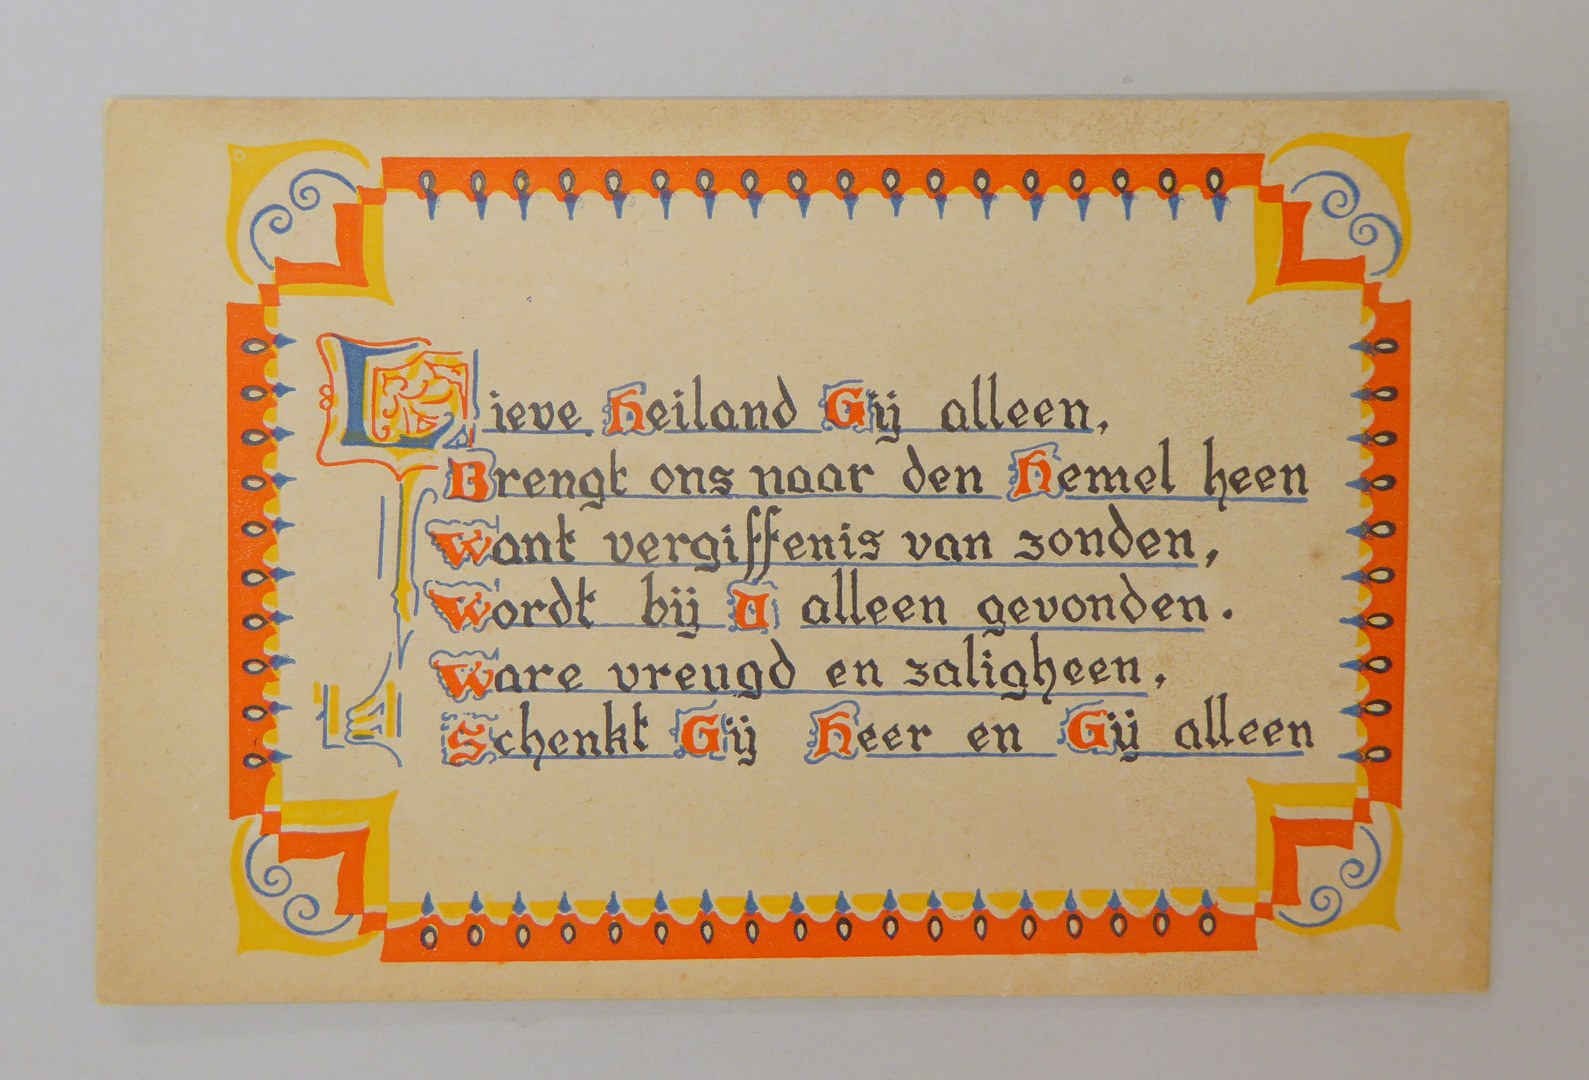 Lieve Heiland Gij alleen,
Brengt ons naar den Hemel heen
Want vergiffenis van zonden,
Wordt bij U alleen gevonden.
Ware vreugd en zaligheen,
Schenkt Gij Heer en Gij alleen